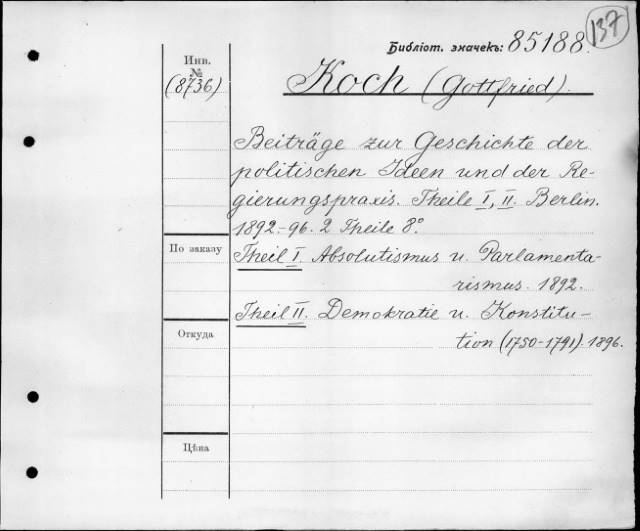 137
Библіот. значекъ: 85188.
Инв.
№
(8736)
Koch (Gottfried).
Beiträge zur Geschichte der
politischen Ideen und der Re-
gierungspraxis. Theile I, II. Berlin.
1892-96. 2 Theile 8°.
По заказу
Theil I. Absolutismus u. Parlamenta-
rismus. 1892.
Theil II. Demokratie u. Konstitu-
Откуда
tion (1750-1791). 1896.
Цѣна